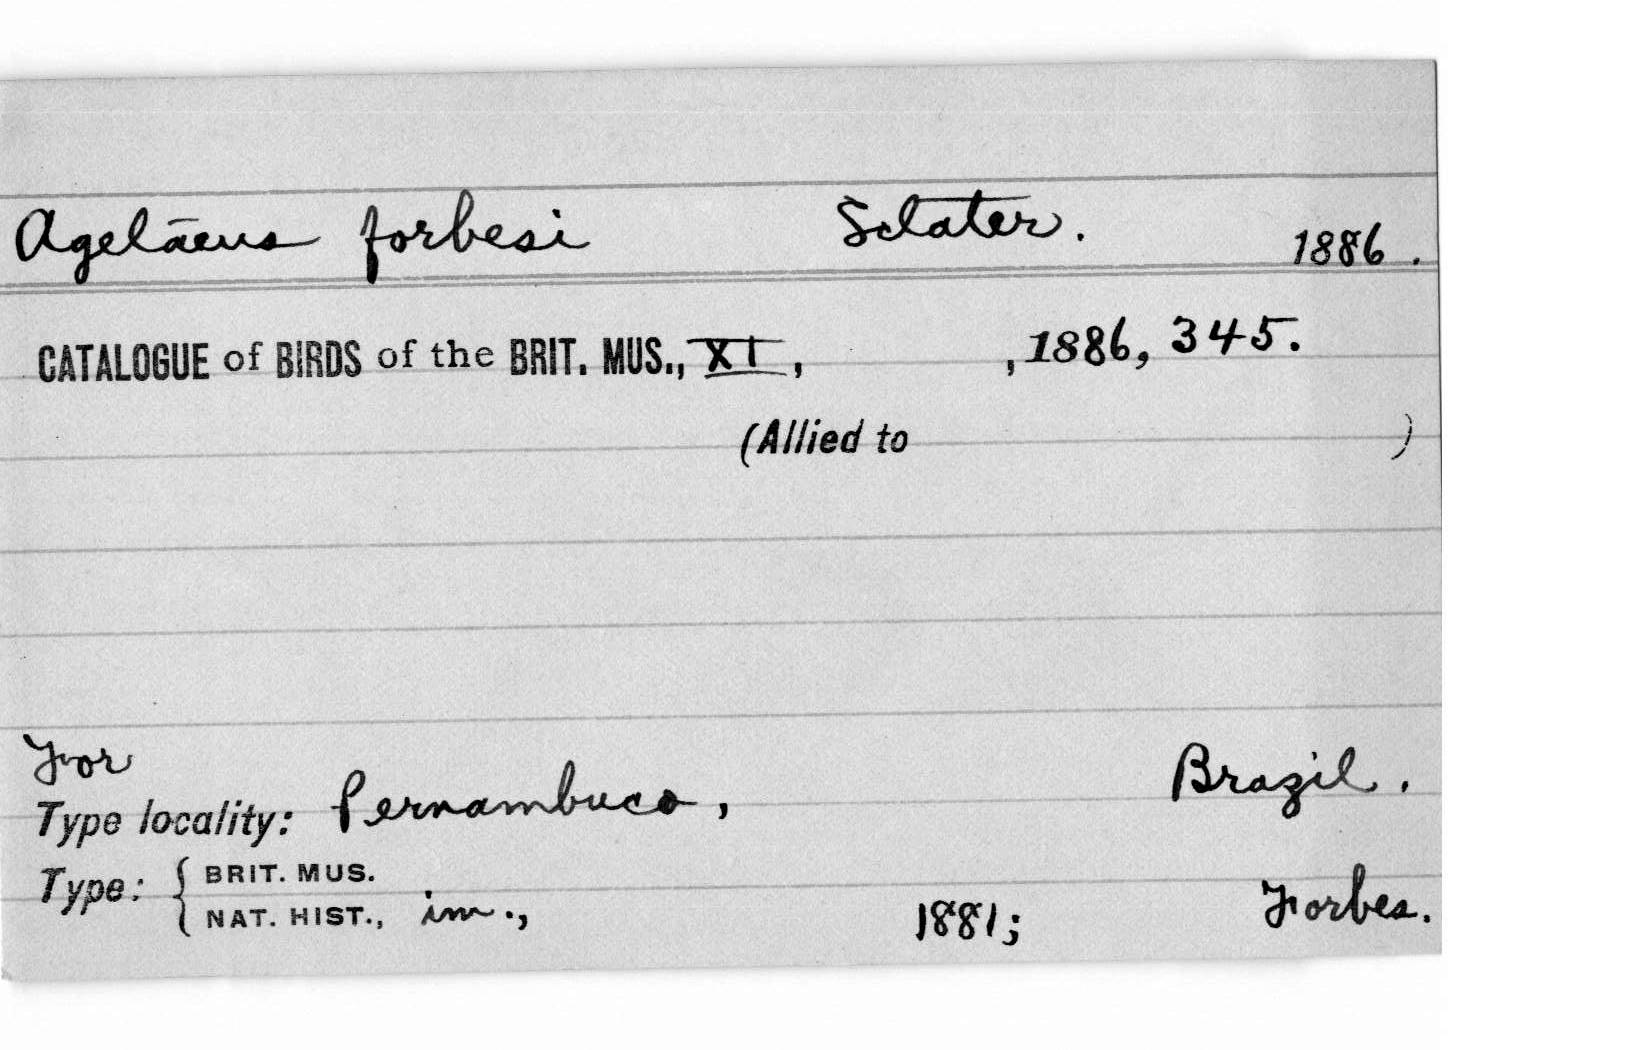 Agelāeus forbesi Sclater. 1886.
CATALOGUE of BIRDS of the BRIT. MUS., XI, , 1886, 345.
(Allied to )
For
Type locality: Pernambuco, Brazil.
Type: { BRIT. MUS.
NAT. HIST., im., 1881; Forbes.